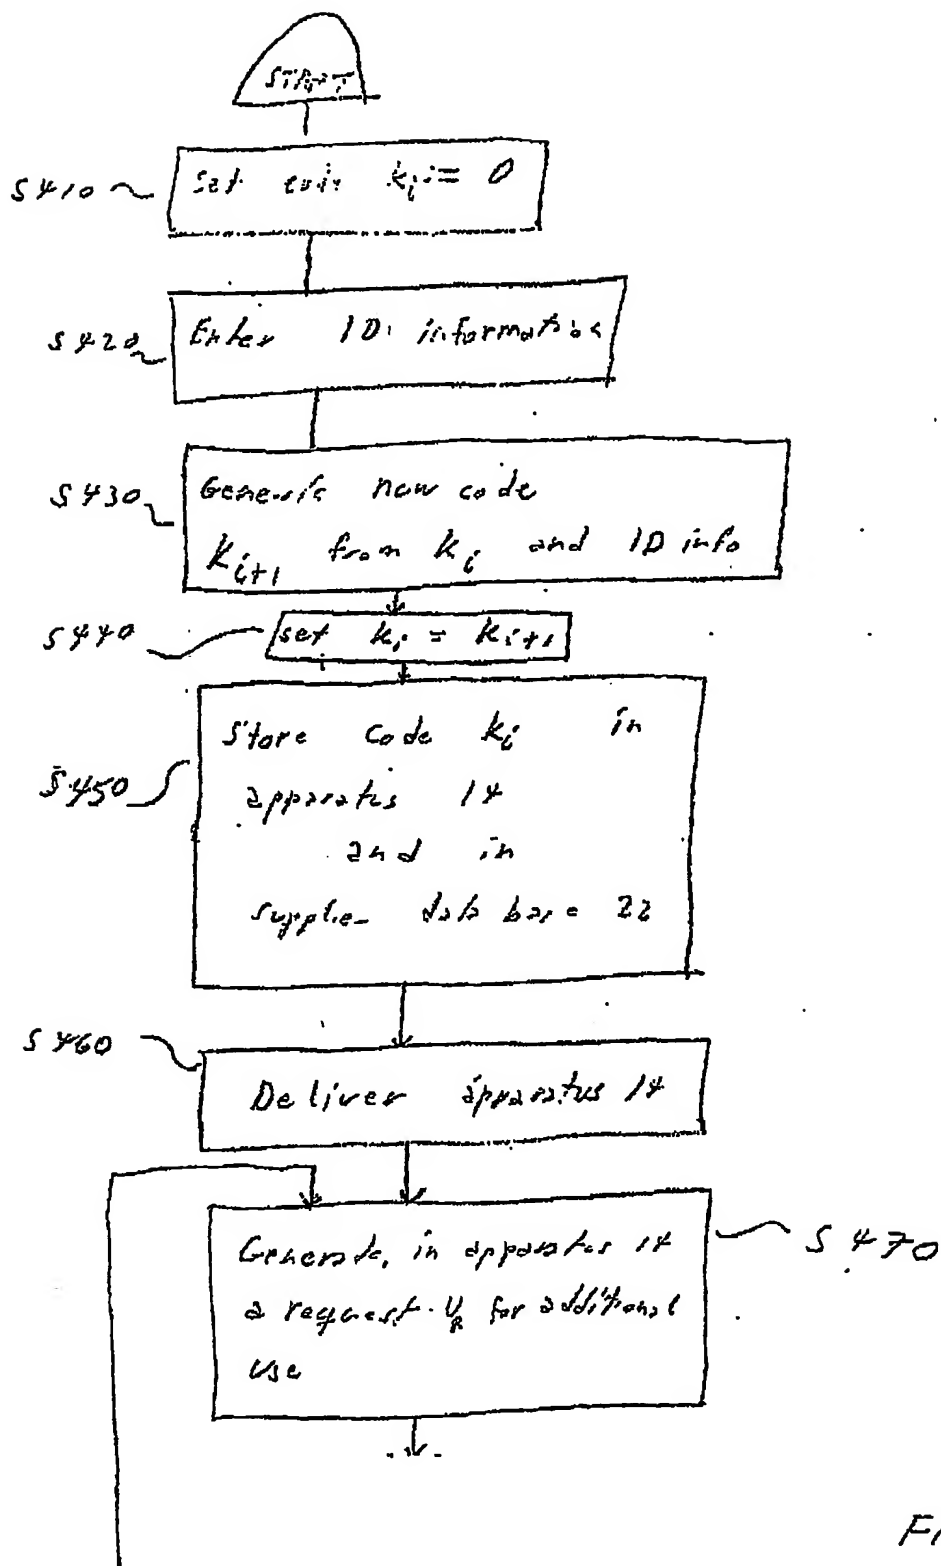 START
S410
Set code ki = 0
S420
Enter ID information
S430
Generate new code
Ki+1 from Ki and ID info
S440
set Ki = Ki+1
S450
Store code Ki in
apparatus 14
and in
supplier data base 22
S460
Deliver apparatus 14
Generate, in apparatus 14
a request UR for additional
use
S470